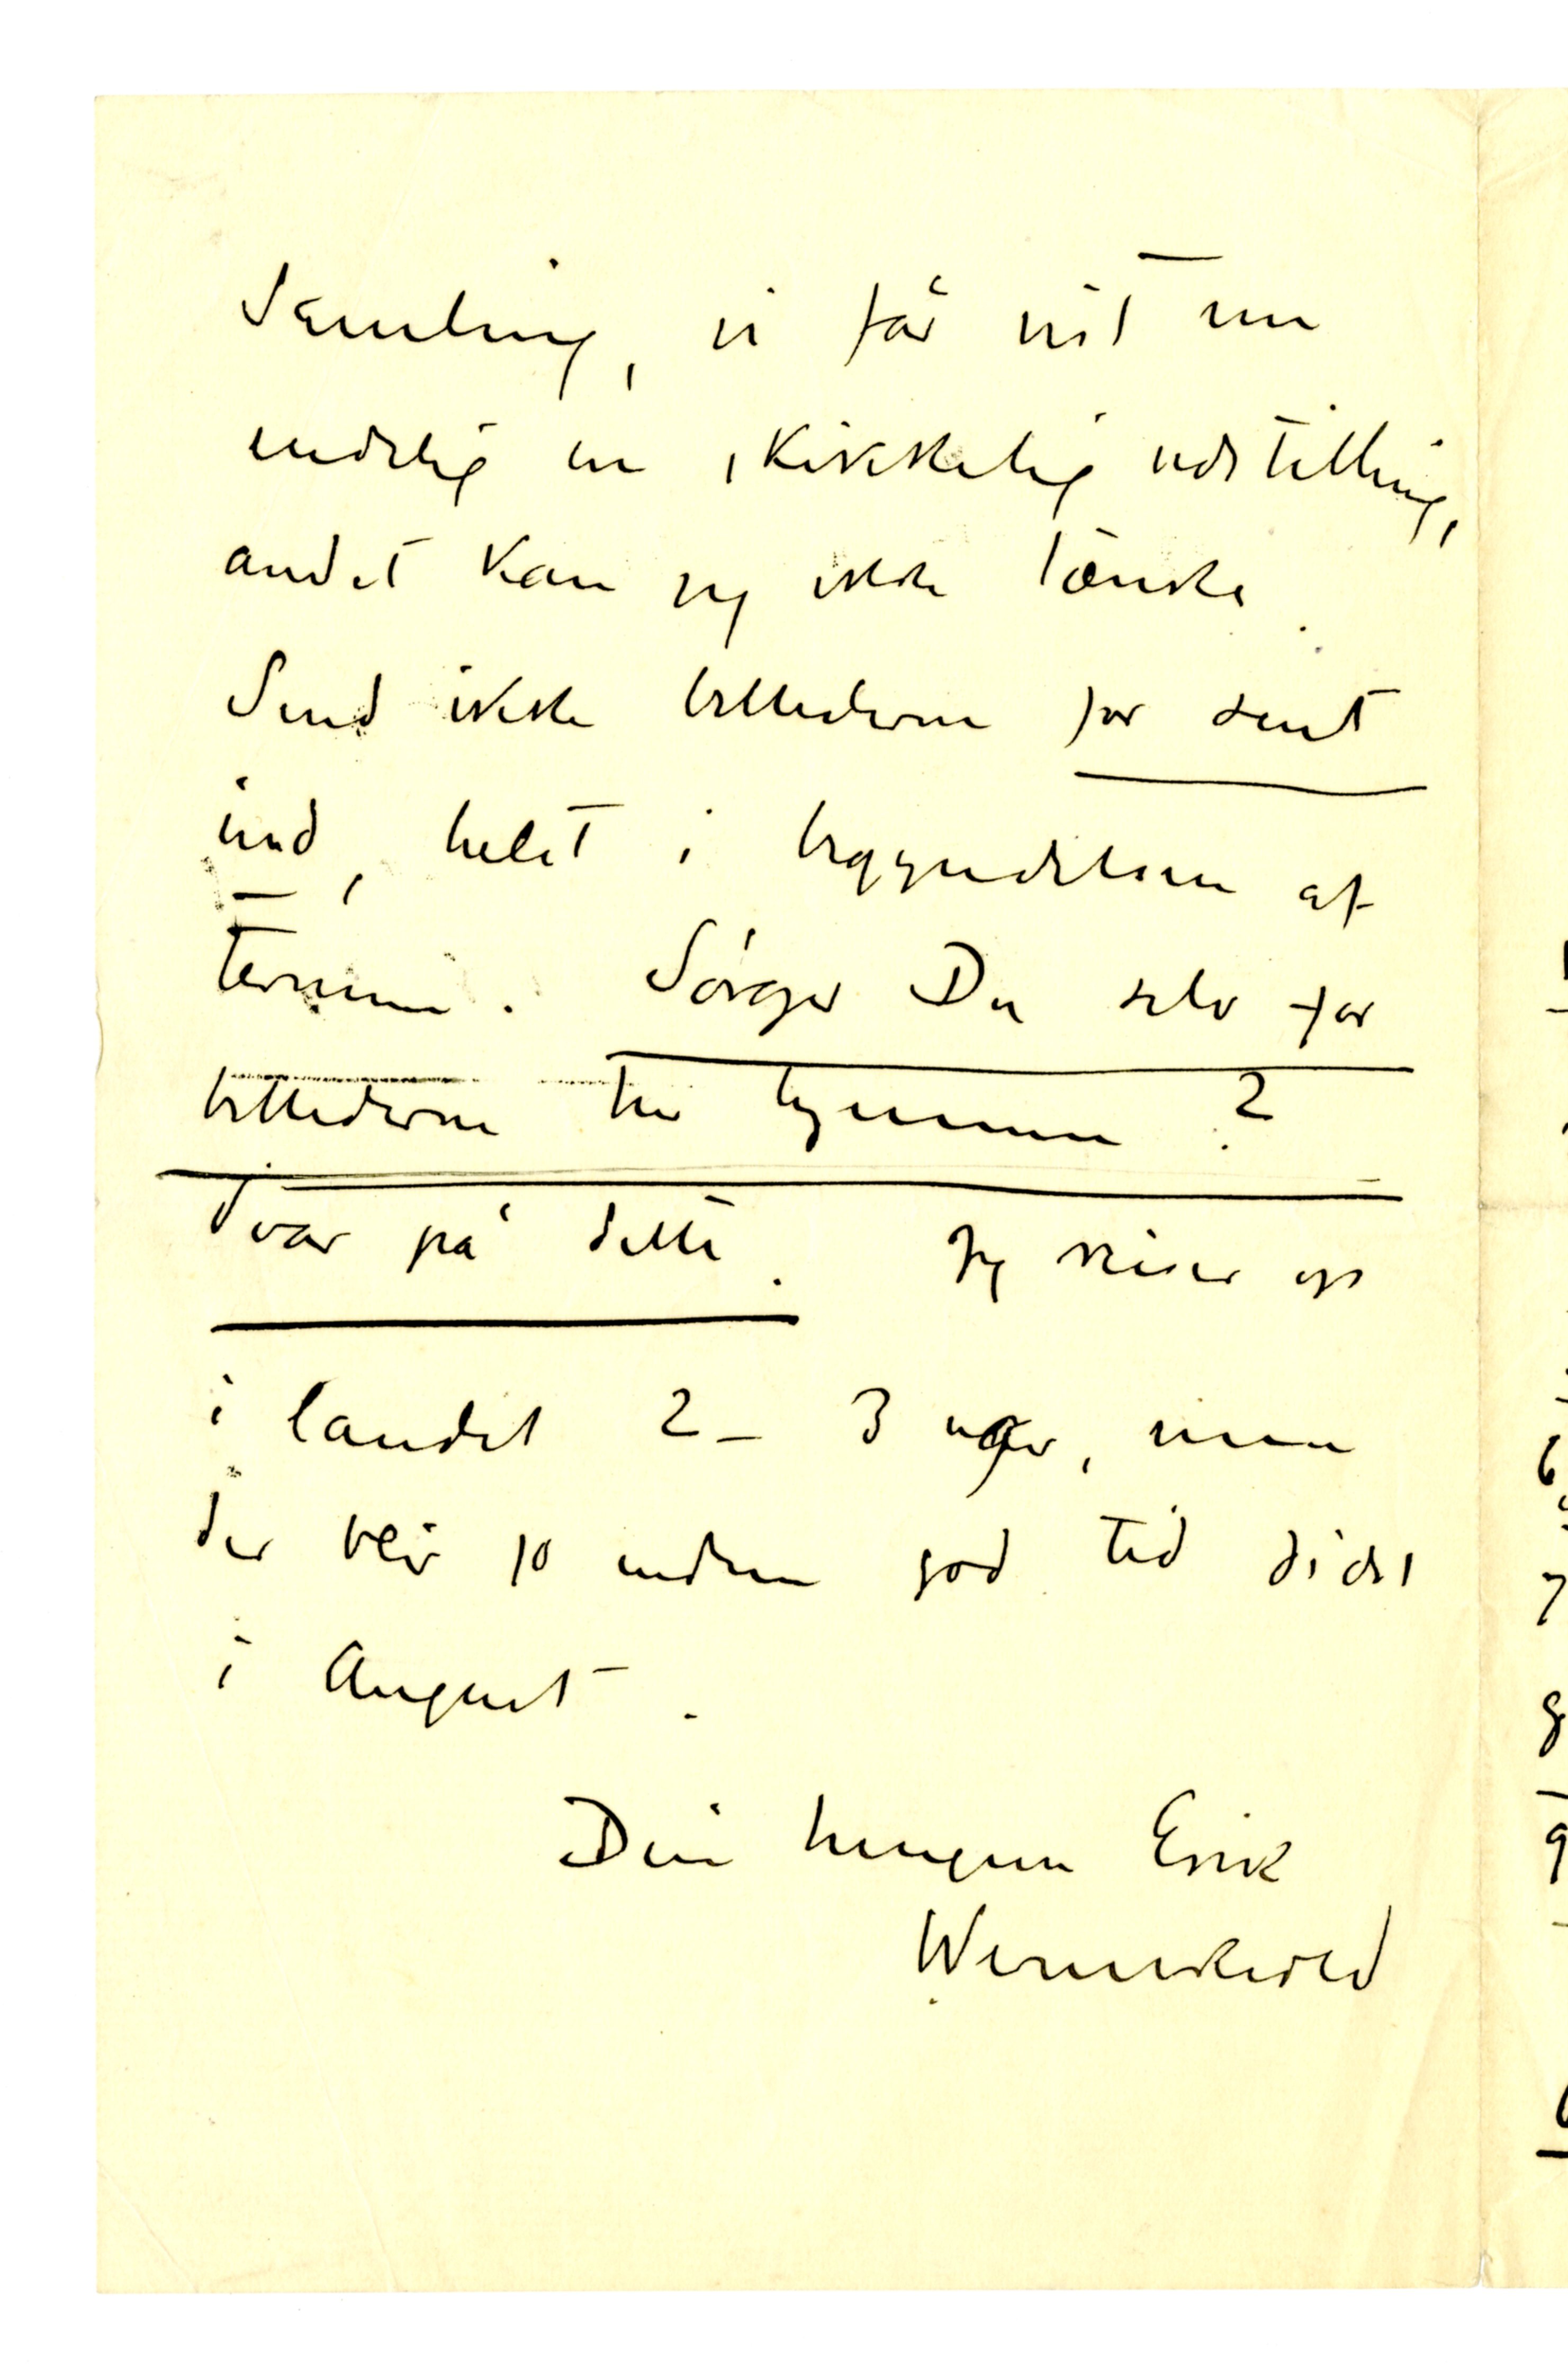 Samling, vi får vist nu
endelig en skikkelig udstilling,
andet kan jeg ikke tænke.
Send ikke billederne for sent
ind, helst i begyndelsen af
terminen. Sørger Du selv for
billederne her hjemme?
Svar på dette. Jeg reiser op
i landet 2 – 3 uger, men
der blir jo endnu god tid sidst
i August.
Din hengivne Erik
Werenskiold
6
7
8
9